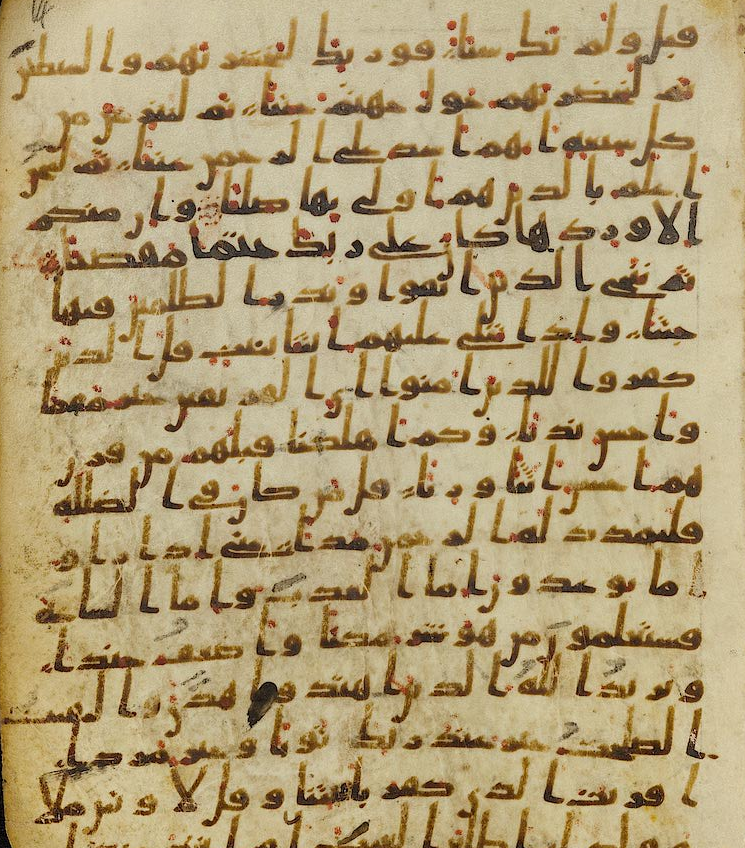 قبل ولم يك شيئا فوربك لنحشرنهم والشيطين
ثم لنحضرنهم حول جهنم جثيا ثم لننزعن من
كل شيعة ايهم اشد على الرحمن عتيا ثم لنحن
اعلم بالذين هم اولى بها صليا وان منكم
الا واردها كان على ربك حتما مقضيا
ثم ننجى الذين اتقوا ونذر الظلمين فيها
جثيا واذا تتلى عليهم ايتنا بينت قال الذين
كفروا للذين امنوا اى الفريقين خير مقاما
واحسن نديا وكم اهلكنا قبلهم من قرن
هم احسن اثثا وريا قل من كان فى الضللة
فليمدد له الرحمن مدا حتى اذا راو
ا ما يوعدون اما العذاب واما الساعة
فسيعلمون من هو شر مكنا واضعف جندا
ويزيد الله الذين اهتدوا هدى والبقيت
الصلحت خير عند ربك ثوبا وخير مردا
افريت الذى كفر بايتنا وقل لاوتين مالا